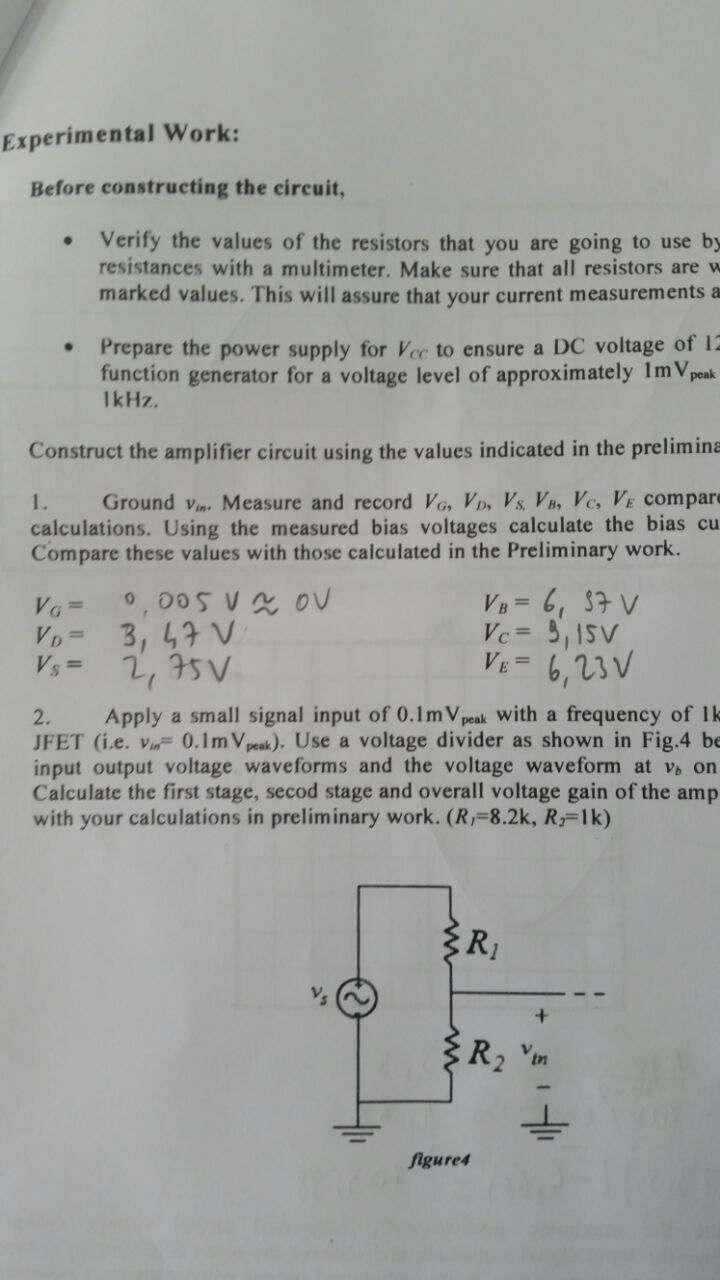 Experimental Work:
Before constructing the circuit,
• Verify the values of the resistors that you are going to use by
resistances with a multimeter. Make sure that all resistors are w
marked values. This will assure that your current measurements a
• Prepare the power supply for Vcc to ensure a DC voltage of 12
function generator for a voltage level of approximately 1mVpeak
1kHz.
Construct the amplifier circuit using the values indicated in the prelimina
1. Ground vin. Measure and record VG, VD, VS, VB, VC, VE compare
calculations. Using the measured bias voltages calculate the bias cu
Compare these values with those calculated in the Preliminary work.
VG = 0,005 V ≈ 0V
VD = 3,47 V
VS = 2,75V
VB = 6,97 V
VC = 9,15V
VE = 6,23V
2. Apply a small signal input of 0.1mVpeak with a frequency of 1k
JFET (i.e. vin= 0.1mVpeak). Use a voltage divider as shown in Fig.4 be
input output voltage waveforms and the voltage waveform at vb on
Calculate the first stage, secod stage and overall voltage gain of the amp
with your calculations in preliminary work. (R1=8.2k, R2=1k)
R1
vs
+
R2 vin
-
figure4